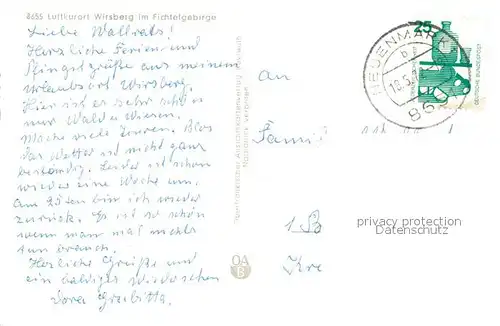 8655 Luftkurort Wirsberg im Fichtelgebirge
Liebe Wallrats!
Herzliche Ferien und
Pfingstgrüße aus meinem
Urlaubsort Wirsberg.
Hier ist es sehr schön
nur Wald u. Wiesen.
Mache viele Touren. Blos
das Wetter ist nicht ganz
beständig. Leider ist schon
wieder eine Woche um.
Am 20ten bin ich wieder
zurück. Es ist so schön
wenn man mal nichts
tun brauch.
Herzliche Grüße und
ein baldiges Wiedersehen
Dora
An
Famil
1 B
Kre
25
DEUTSCHE BUNDESPOST
NEUENMAR
b
18.5.
865
OA
B
privacy protection
Datenschutz